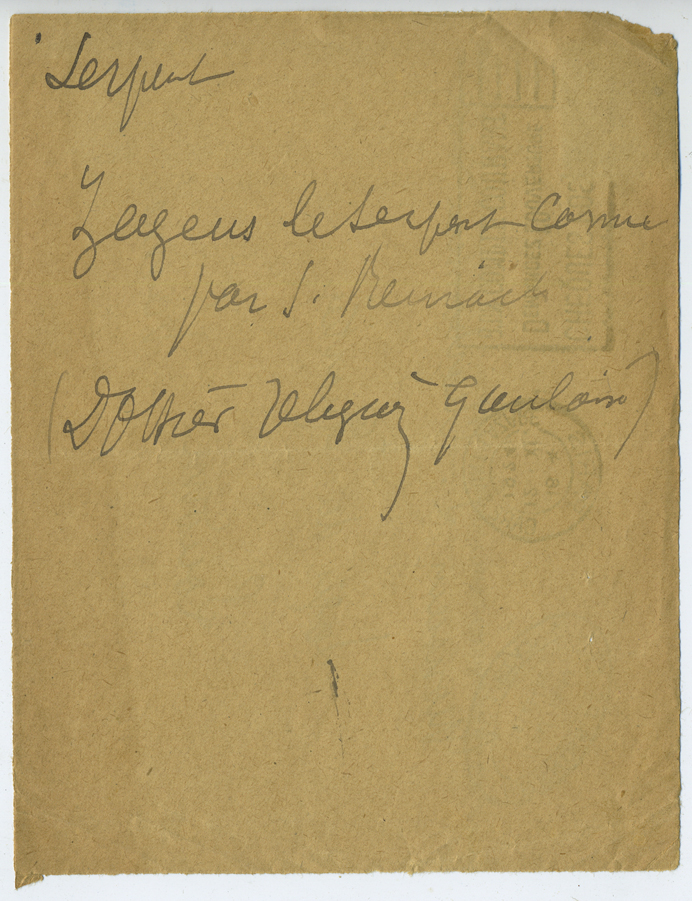 Serpent
Zagreus le serpent cornu
par S. Reinach
(Dossier religion Gauloise)